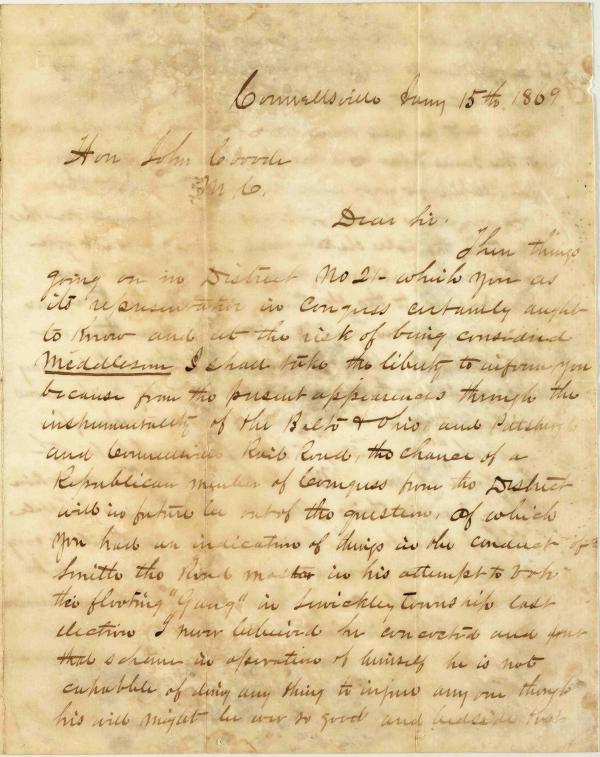 Connellsville Jany 15th 1869
Hon John Covode
M. C.
Dear Sir.
Ther things
going on in District No 21 which you as
its representative in Congress certainly aught
to know and at the risk of being considered
Meddlesom I shall take the liberty to inform you
because from the present appearences through the
instrumentality of the Balto & Ohio, and Pittsburgh
and Connellsville Rail Road, the chance of a
Republican member of Congress from the District
will in future be out of the question, Of which
you had an indication of things in the conduct of
Smith the Road master in his attempt to vote
the floating "Gang" in Sewickley township last
election I never believed he concocted and put
that scheme in operation of himself he is not
capabble of doing any thing to injure any one though
his will might be ever so good and